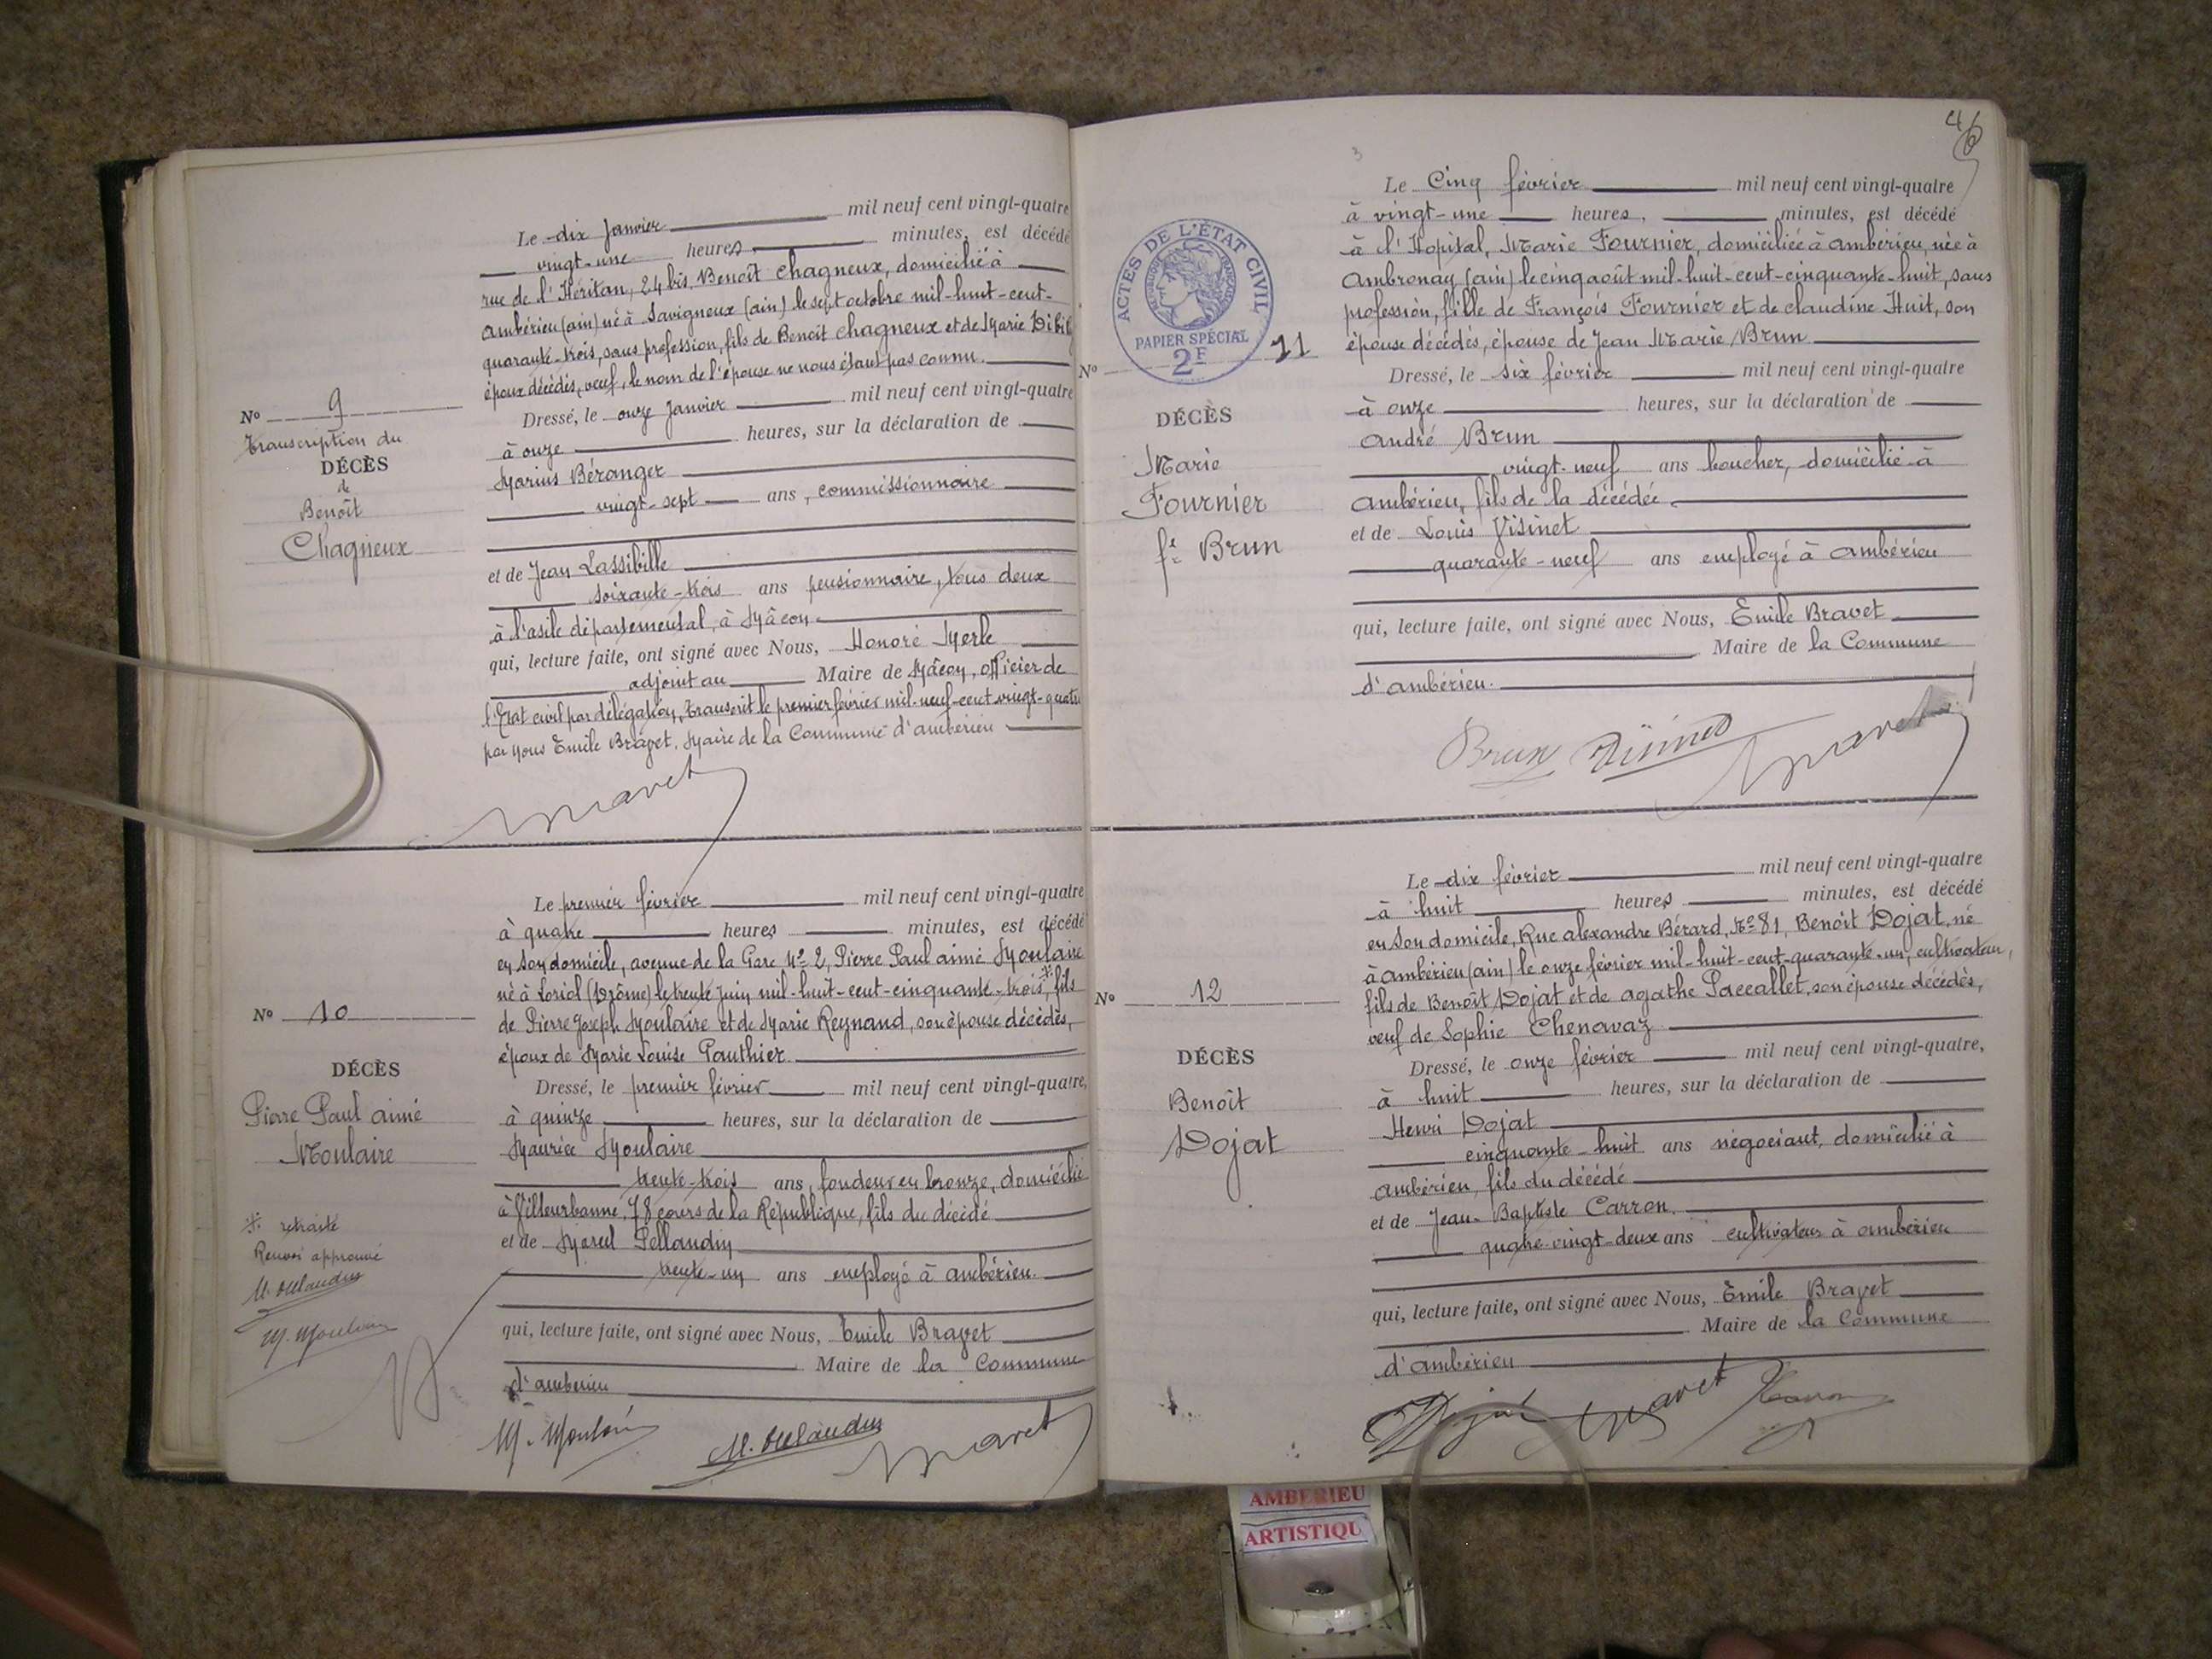 Le dix janvier mil neuf cent vingt-quatre
vingt-une heures, minutes, est décédé
rue de l'Héritan, 24 bis, Benoît Chagneux, domicilié à
Ambérieu (ain) né à Savigneux (ain) le sept octobre mil-huit-cent-
quarante-trois, sans profession, fils de Benoît Chagneux et de Marie
époux décédés, veuf, le nom de l'épouse ne nous étant pas connu.
Dressé, le onze janvier mil neuf cent vingt-quatre
à onze heures, sur la déclaration de
Marius Béranger
vingt-sept ans, commissionnaire
et de Jean Lassibille
soixante-trois ans pensionnaire, tous deux
à l'asile départemental, à Mâcon.
qui, lecture faite, ont signé avec Nous, Honoré Merle
adjoint au Maire de Mâcon, officier de
l'Etat civil par délégation, transcrit le premier février mil-neuf-cent-vingt-quatre
par Nous Emile Bravet, Maire de la Commune d'ambérieu
Bravet
No 9
Transcription du
DÉCÈS
de
Benoît
Chagneux
Le premier février mil neuf cent vingt-quatre
à quatre heures minutes, est décédé
en son domicile, avenue de la Gare No 2, Pierre Paul aimé Moulaire
né à Loriol (Drôme) le trente Juin mil-huit-cent-cinquante-trois*, fils
de Pierre Joseph Moulaire et de Marie Reynaud, son épouse décédés,
époux de Marie Louise Pauthier.
Dressé, le premier février mil neuf cent vingt-quatre,
à quinze heures, sur la déclaration de
Maurice Moulaire
trente-trois ans, fondeur en bronze, domicilié
à Villeurbanne, 78 cours de la République, fils du décédé
et de Marcel Pellaudin
trente-un ans employé à ambérieu.
qui, lecture faite, ont signé avec Nous, Emile Bravet
Maire de la Commune
d'ambérieu
Bravet
No 10
DÉCÈS
Pierre Paul aimé
Moulaire
* retraité
Renvoi approuvé
4
6
Le Cinq février mil neuf cent vingt-quatre
à vingt-une heures, minutes, est décédé
à l'Hopital, Marie Fournier, domiciliée à ambérieu, née à
Ambronay (ain) le cinq août mil-huit-cent-cinquante-huit, sans
profession, fille de François Fournier et de claudine Huit, son
épouse décédés, épouse de Jean Marie Brun
Dressé, le six février mil neuf cent vingt-quatre
à onze heures, sur la déclaration de
André Brun
vingt-neuf ans boucher, domicilié à
ambérieu, fils de la décédée.
et de Louis Visinet
quarante-neuf ans employé à ambérieu
qui, lecture faite, ont signé avec Nous, Emile Bravet
Maire de la Commune
d'ambérieu.
Brun Bravet
ACTES DE L'ÉTAT CIVIL
RÉPUBLIQUE FRANÇAISE
PAPIER SPÉCIAL
2F
No 11
DÉCÈS
Marie
Fournier
fe Brun
Le dix février mil neuf cent vingt-quatre
à huit heures minutes, est décédé
en son domicile, Rue alexandre Bérard, No 81, Benoît Dojat, né
à ambérieu (ain) le onze février mil-huit-cent-quarante-un, cultivateur,
fils de Benoît Dojat et de agathe Paccallet, son épouse décédés,
veuf de Sophie Chenavaz
Dressé, le onze février mil neuf cent vingt-quatre,
à huit heures, sur la déclaration de
Henri Dojat
cinquante-huit ans négociant, domicilié à
ambérieu, fils du décédé
et de Jean-Baptiste Carron.
quatre-vingt-deux ans cultivateur à ambérieu
qui, lecture faite, ont signé avec Nous, Emile Bravet
Maire de la Commune
d'ambérieu
Dojat Bravet Carron
No 12
DÉCÈS
Benoît
Dojat
AMBERIEU
ARTISTIQU